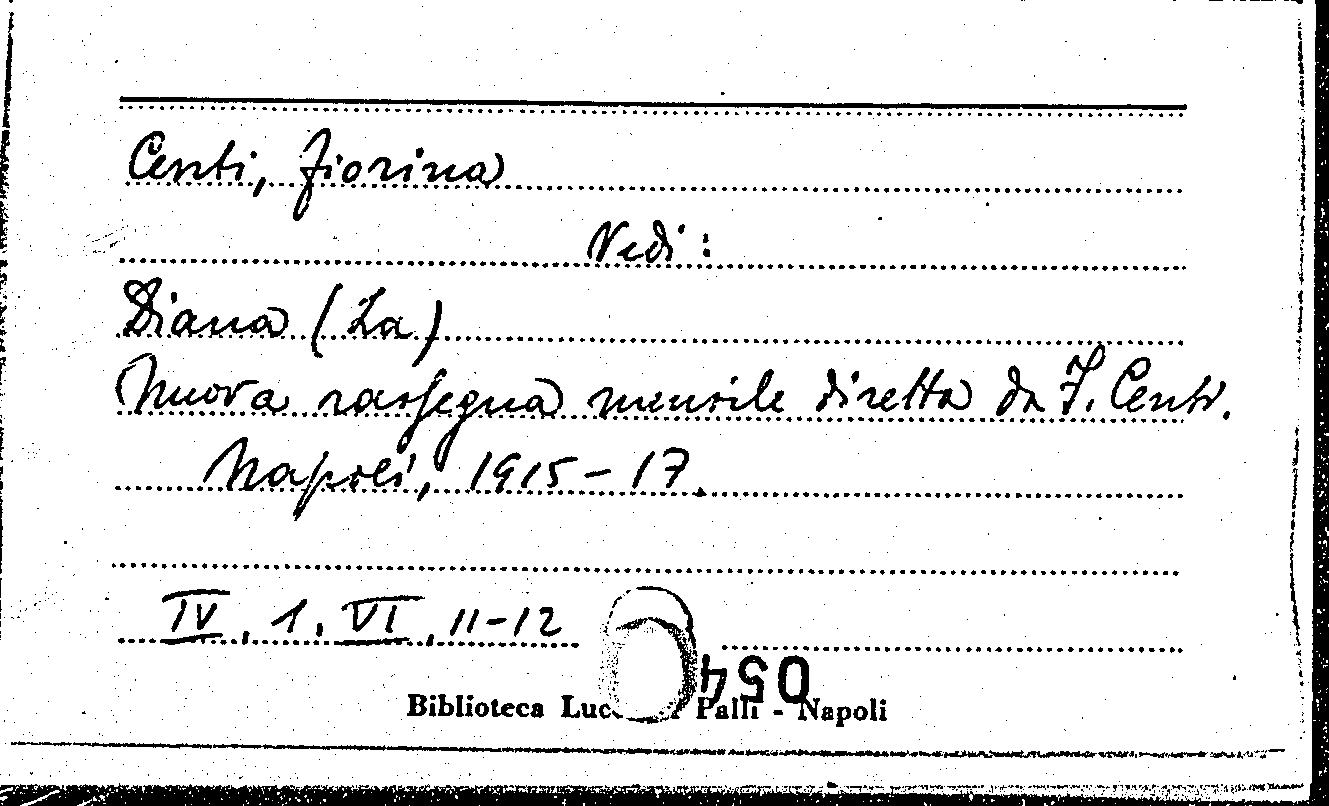 Centi, Fiorina
Vedi:
Diana (La)
Nuova rassegna mensile diretta da F. Centi.
Napoli, 1915-17.
IV, 1, VI, 11-12
054
Biblioteca Palli - Napoli